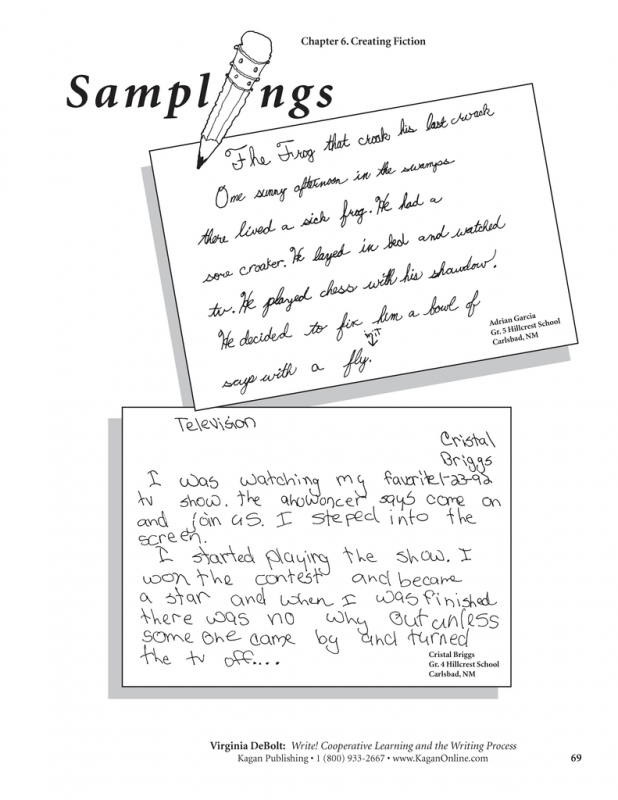 Chapter 6. Creating Fiction
Sampl ngs
The Frog that croak his last crwack
One sunny afternoon in the swamps
there lived a sick frog. He had a
sore croaker. He layed in bed and watched
tv. He played chess with his shawdow.
He decided to fix him a bowl of
in it
saye with a fly.
Adrian Garcia
Gr. 5 Hillcrest School
Carlsbad, NM
Television
Cristal
Briggs
1-23-92
I was watching my favorite
tv show. the anowoncer says come on
and join us. I steped into the
screen.
I started playing the show. I
won the contest and became
a star and when I was finished
there was no why out unless
some one came by and turned
the tv off....
Cristal Briggs
Gr. 4 Hillcrest School
Carlsbad, NM
Virginia DeBolt: Write! Cooperative Learning and the Writing Process
Kagan Publishing • 1 (800) 933-2667 • www.KaganOnline.com
69